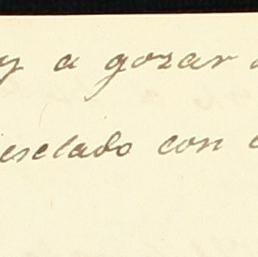 y a gozar
esclado con